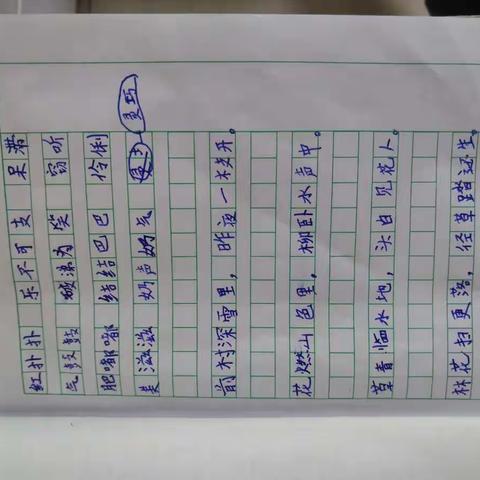 红扑扑 乐不可支 呆滞
气鼓鼓 破涕为笑 窃听
肥嘟嘟 结结巴巴 伶俐
美滋滋 奶声奶气 灵巧
前村深雪里，昨夜一枝开。
花燃山色里，柳卧水声中。
草青临水地，头白见花人。
林花扫更落，径草踏还生。